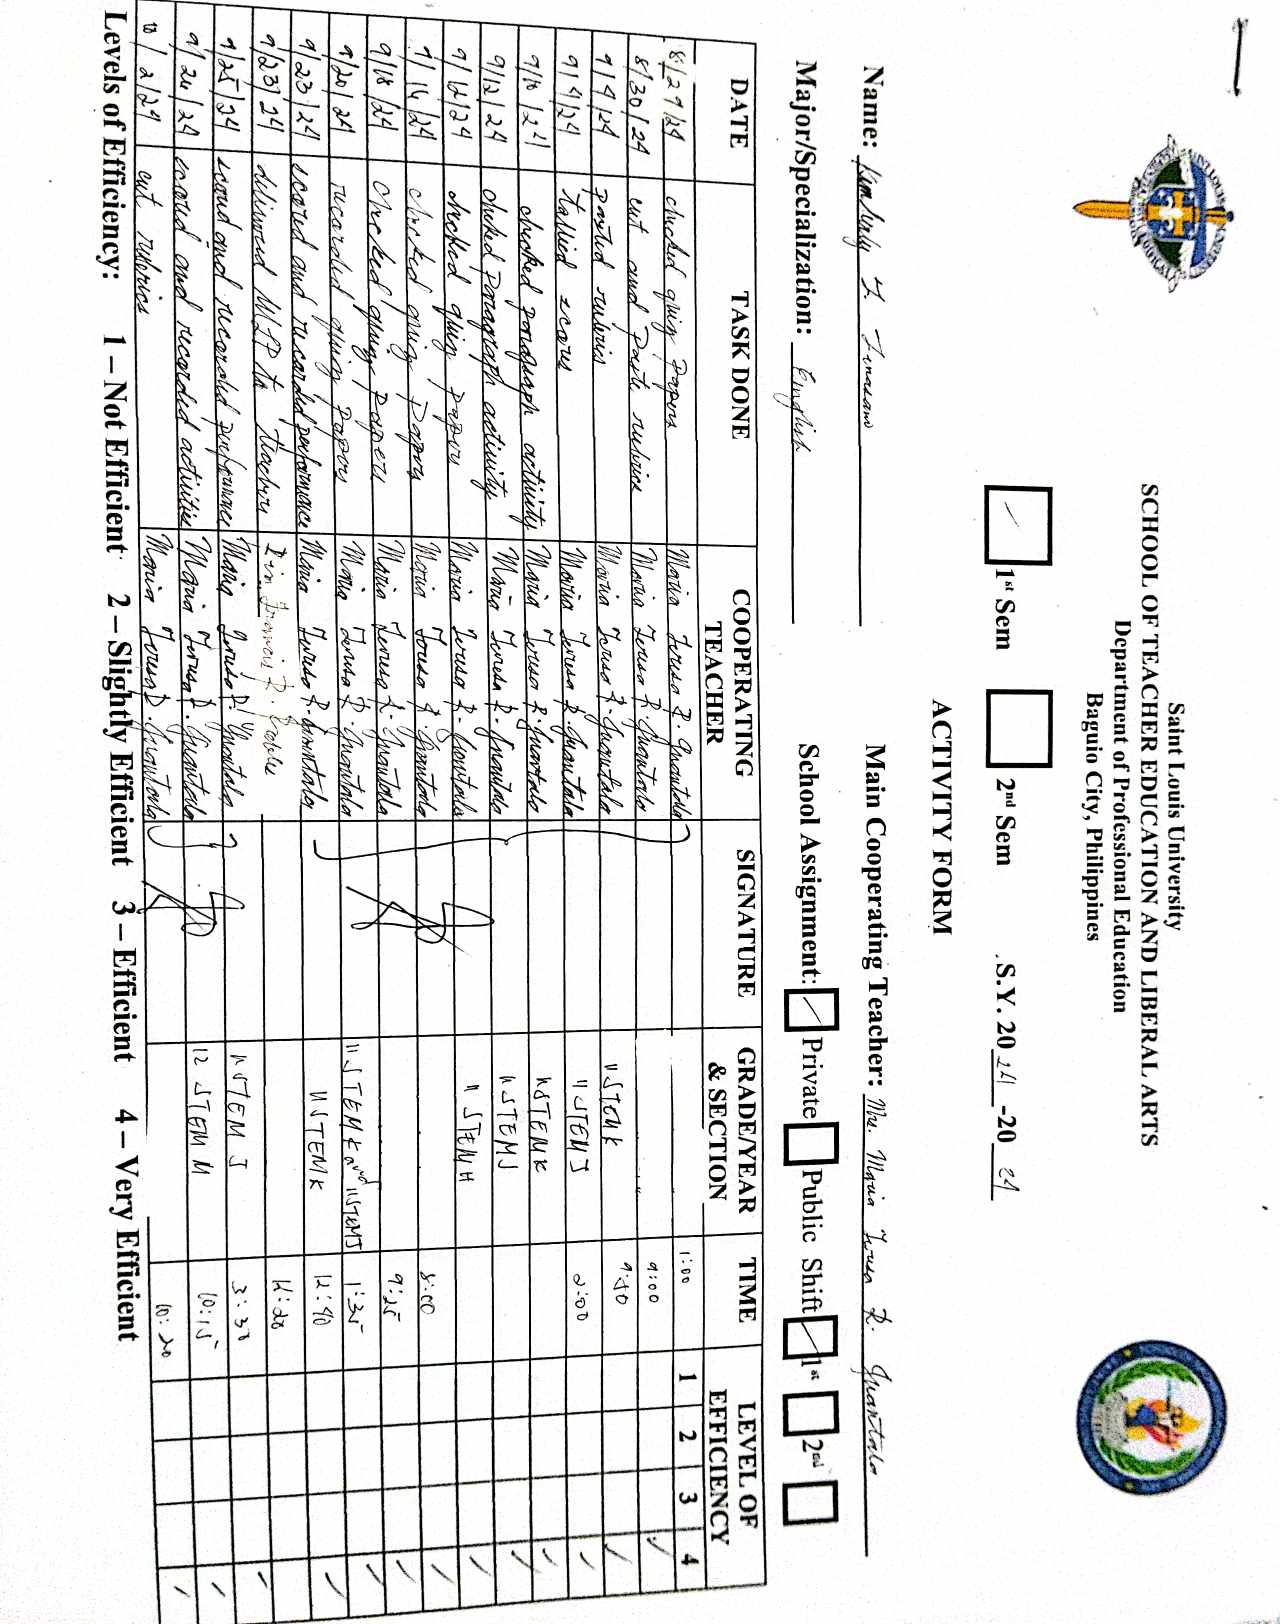 Saint Louis University
SCHOOL OF TEACHER EDUCATION AND LIBERAL ARTS
Department of Professional Education
Baguio City, Philippines
1st Sem 2nd Sem S.Y. 2024-2024
ACTIVITY FORM
Name: Kimberly Main Cooperating Teacher: Mrs. Maria Teresa R. Guantala
Major/Specialization: English School Assignment: Private Public Shift 1st 2nd
DATE TASK DONE COOPERATING TEACHER SIGNATURE GRADE/YEAR & SECTION TIME LEVEL OF EFFICIENCY
1 2 3 4
8/29/24 checked quiz papers Maria Teresa R. Guantala 1:00
8/30/24 cut and paste rubrics Maria Teresa R. Guantala 9:00
9/4/24 pasted rubrics Maria Teresa R. Guantala 11 STEM K 9:50
9/4/24 tallied scores Maria Teresa R. Guantala 11 STEM J 2:00
9/10/24 checked paragraph activity Maria Teresa R. Guantala 11 STEM K
9/12/24 checked paragraph activity Maria Teresa R. Guantala 11 STEM J
9/12/24 checked quiz papers Maria Teresa R. Guantala 11 STEM H
9/16/24 checked quiz papers Maria Teresa R. Guantala 8:00
9/18/24 checked quiz papers Maria Teresa R. Guantala 9:25
9/20/24 recorded quiz papers Maria Teresa R. Guantala 11 STEM K and 11 STEM J 1:35
9/23/24 scored and recorded performance Maria Teresa R. Guantala 11 STEM K 12:40
9/23/24 delivered MLP to teachers Francis R. Robles 12:20
9/25/24 scored and recorded performance Maria Teresa R. Guantala 11 STEM J 3:30
9/26/24 scored and recorded activities Maria Teresa R. Guantala 12 STEM M 10:15
10/2/24 cut rubrics Maria Teresa R. Guantala 10:20
Levels of Efficiency: 1 – Not Efficient 2 – Slightly Efficient 3 – Efficient 4 – Very Efficient